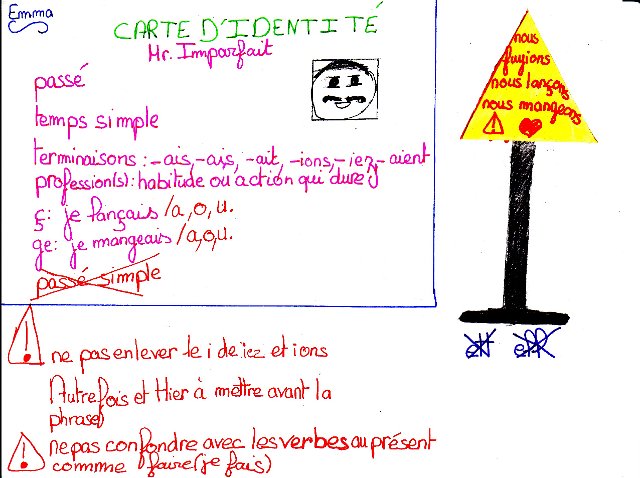 Emma
CARTE D'IDENTITÉ
Mr. Imparfait
passé
temps simple
terminaisons : -ais, -ais, -ait, -ions, -iez, -aient
profession(s) : habitude ou action qui dure
ç : je lançais /a, o, u.
ge : je mangeais /a, o, u.
passé simple
nous
fuyions
nous lançons
nous mangeons
ett eff
! ne pas enlever le i de iez et ions
Autrefois et Hier à mettre avant la
phrase
! ne pas confondre avec les verbes au présent
commme faire (je fais)